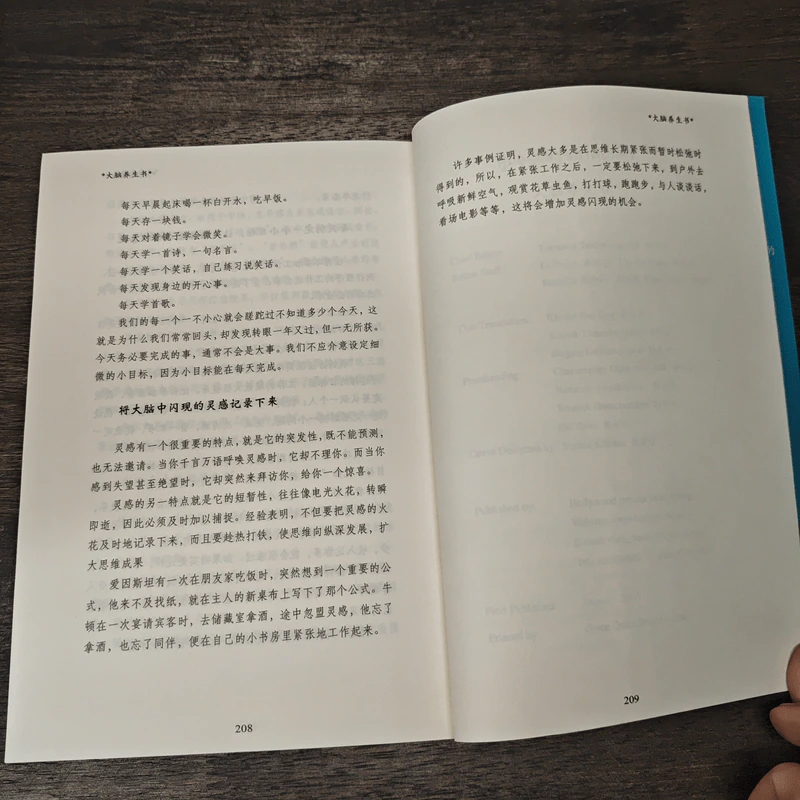 *大脑养生书*
每天早晨起床喝一杯白开水，吃早饭。
每天存一块钱。
每天对着镜子学会微笑。
每天学一首诗，一句名言。
每天学一个笑话，自己练习说笑话。
每天发现身边的开心事。
每天学首歌。
我们的每一个一不小心就会蹉跎过不知道多少个今天，这
就是为什么我们常常回头，却发现转眼一年又过，但一无所获。
今天务必要完成的事，通常不会是大事。我们不应介意设定细
微的小目标，因为小目标能在每天完成。
将大脑中闪现的灵感记录下来
灵感有一个很重要的特点，就是它的突发性，既不能预测，
也无法邀请。当你千言万语呼唤灵感时，它却不理你。而当你
感到失望甚至绝望时，它却突然来拜访你，给你一个惊喜。
灵感的另一特点就是它的短暂性，往往像电光火花，转瞬
即逝，因此必须及时加以捕捉。经验表明，不但要把灵感的火
花及时地记录下来，而且要趁热打铁，使思维向纵深发展，扩
大思维成果
爱因斯坦有一次在朋友家吃饭时，突然想到一个重要的公
式，他来不及找纸，就在主人的新桌布上写下了那个公式。牛
顿在一次宴请宾客时，去储藏室拿酒，途中忽盟灵感，他忘了
拿酒，也忘了同伴，便在自己的小书房里紧张地工作起来。
208
*大脑养生书*
许多事例证明，灵感大多是在思维长期紧张而暂时松弛时
得到的，所以，在紧张工作之后，一定要松弛下来，到户外去
呼吸新鲜空气，观赏花草虫鱼，打打球，跑跑步，与人谈谈话，
看场电影等等，这将会增加灵感闪现的机会。
209